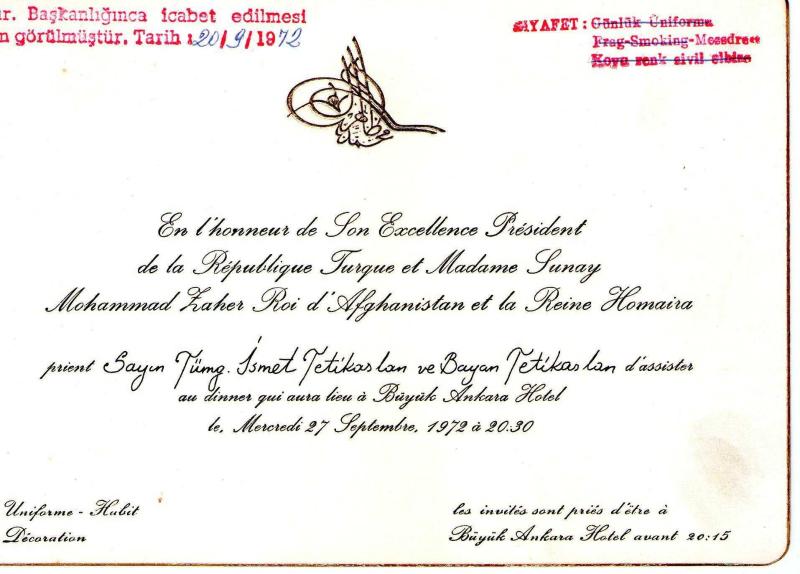 ır. Başkanlığınca icabet edilmesi
n görülmüştür. Tarih : 20/9/1972
KIYAFET : Günlük Üniforma
Frag-Smoking-Messdress
Koyu renk sivil elbise
محمد ظاهر
En l'honneur de Son Excellence Président
de la République Turque et Madame Sunay
Mohammad Zaher Roi d'Afghanistan et la Reine Homaira
prient Sayın Tümg. İsmet Tetikaslan ve Bayan Tetikaslan d'assister
au dinner qui aura lieu à Büyük Ankara Hotel
le, Mercredi 27 Septembre, 1972 à 20:30
Uniforme - Habit
Décoration
les invités sont priés d'être à
Büyük Ankara Hotel avant 20:15